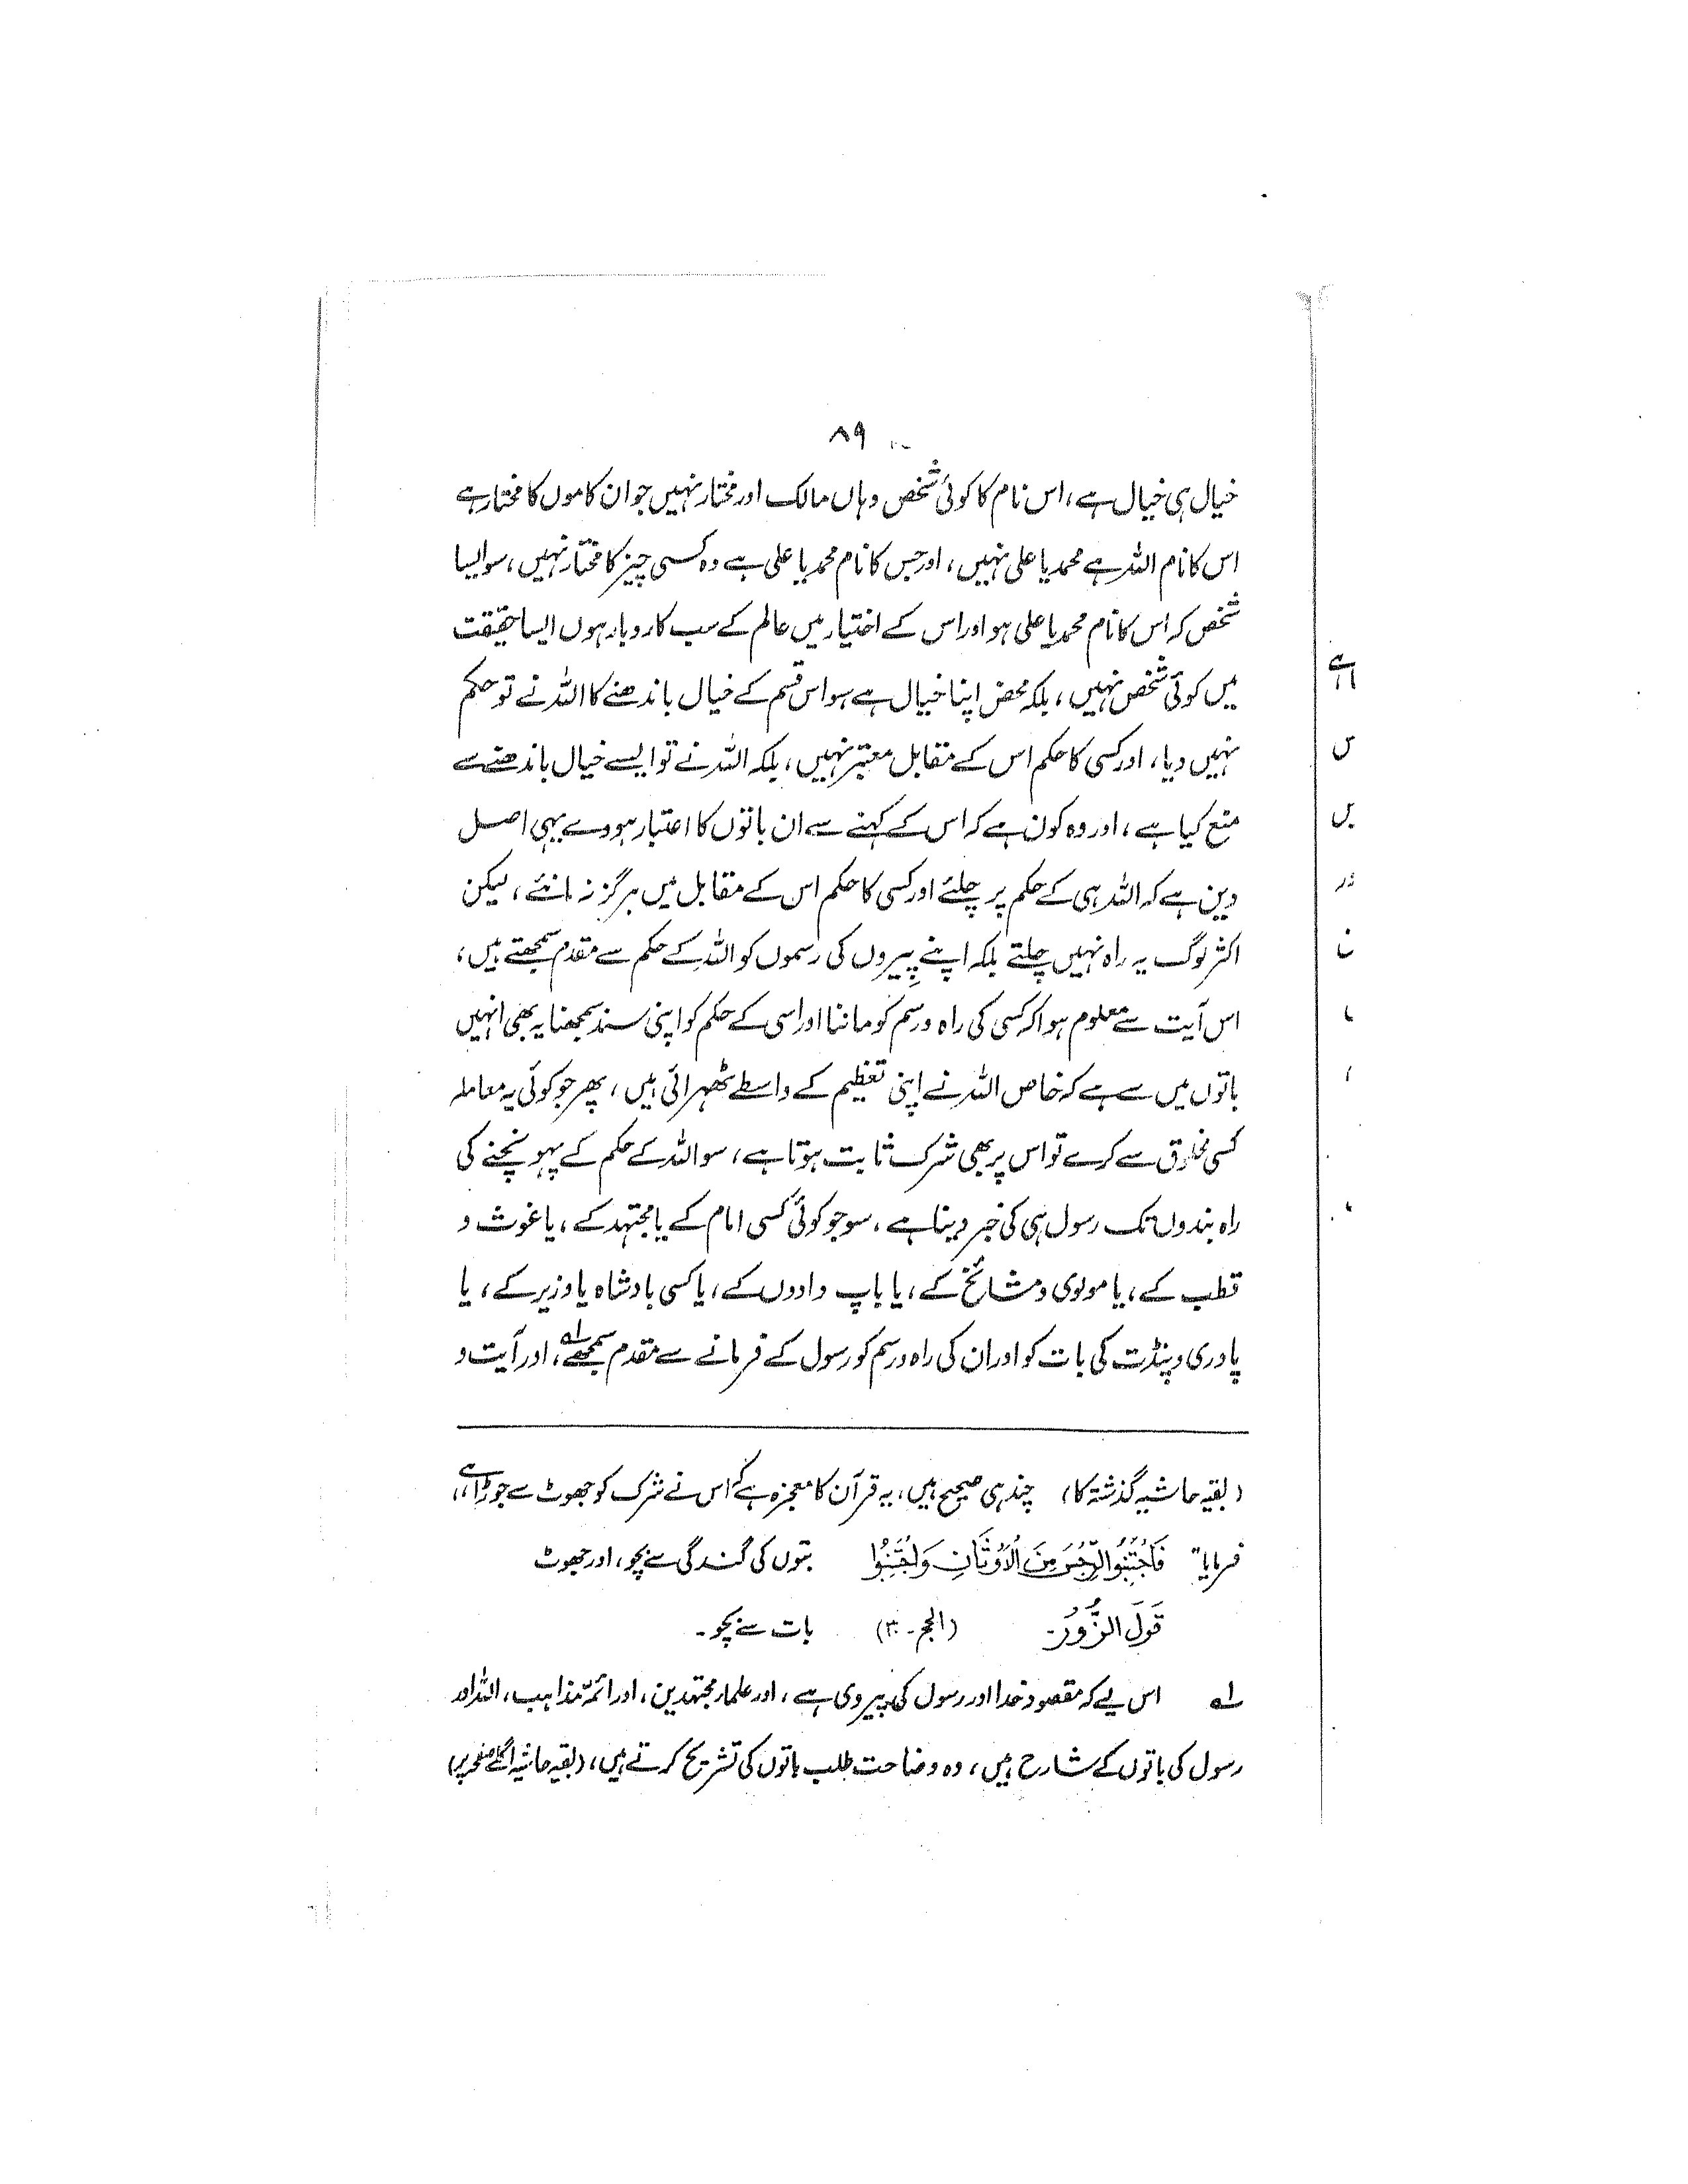 ۸۹
خیال ہی خیال ہے، اس نام کا کوئی شخص وہاں مالک اور مختار نہیں جو ان کاموں کا مختار ہے
اس کا نام اللہ ہے محمد یا علی نہیں، اور جس کا نام محمد یا علی ہے وہ کسی چیز کا مختار نہیں، سو ایسا
شخص کہ اس کا نام محمد یا علی ہو اور اس کے اختیار میں عالم کے سب کاروبار ہوں ایسا حقیقت
میں کوئی شخص نہیں، بلکہ محض اپنا خیال ہے سو اس قسم کے خیال باندھنے کا اللہ نے تو حکم
نہیں دیا، اور کسی کا حکم اس کے مقابل معتبر نہیں، بلکہ اللہ نے تو ایسے خیال باندھنے سے
منع کیا ہے، اور وہ کون ہے کہ اس کے کہنے سے ان باتوں کا اعتبار ہووے یہی اصل
دین ہے کہ اللہ ہی کے حکم پر چلئے اور کسی کا حکم اس کے مقابل میں ہرگز نہ مانئے، لیکن
اکثر لوگ یہ راہ نہیں چلتے بلکہ اپنے پیروں کی رسموں کو اللہ کے حکم سے مقدم سمجھتے ہیں،
اس آیت سے معلوم ہوا کہ کسی کی راہ و رسم کو ماننا اور اسی کے حکم کو اپنی سند سمجھنا یہ بھی انہیں
باتوں میں سے ہے کہ خاص اللہ نے اپنی تعظیم کے واسطے ٹھہرائی ہیں، پھر جو کوئی یہ معاملہ
کسی مخلوق سے کرے تو اس پر بھی شرک ثابت ہوتا ہے، سو اللہ کے حکم کے پہونچنے کی
راہ بندوں تک رسول ہی کی خبر دینا ہے، سو جو کوئی کسی امام کے یا مجتہد کے، یا غوث و
قطب کے، یا مولوی و مشائخ کے، یا باپ دادوں کے، یا کسی بادشاہ یا وزیر کے، یا
پادری و پنڈت کی بات کو اور ان کی راہ و رسم کو رسول کے فرمانے سے مقدم سمجھے؂۱، اور آیت و
(بقیہ حاشیہ گذشتہ کا) چند ہی صحیح ہیں، یہ قرآن کا معجزہ ہے کہ اس نے شرک کو جھوٹ سے جوڑا ہے،،
فرمایا" فَاجْتَنِبُوا الرِّجْسَ مِنَ الْاَوْثَانِ وَاجْتَنِبُوْا بتوں کی گندگی سے بچو، اور جھوٹ
قَوْلَ الزُّوْرِ۔ (الحج۔ ۳۰) بات سے بچو۔
؂۱ اس لیے کہ مقصود خدا اور رسول کی پیروی ہے، اور علماء مجتہدین، اور ائمۂ مذاہب، اللہ اور
رسول کی باتوں کے شارح ہیں، وہ وضاحت طلب باتوں کی تشریح کرتے ہیں، (بقیہ حاشیہ اگلے صفحہ پر)